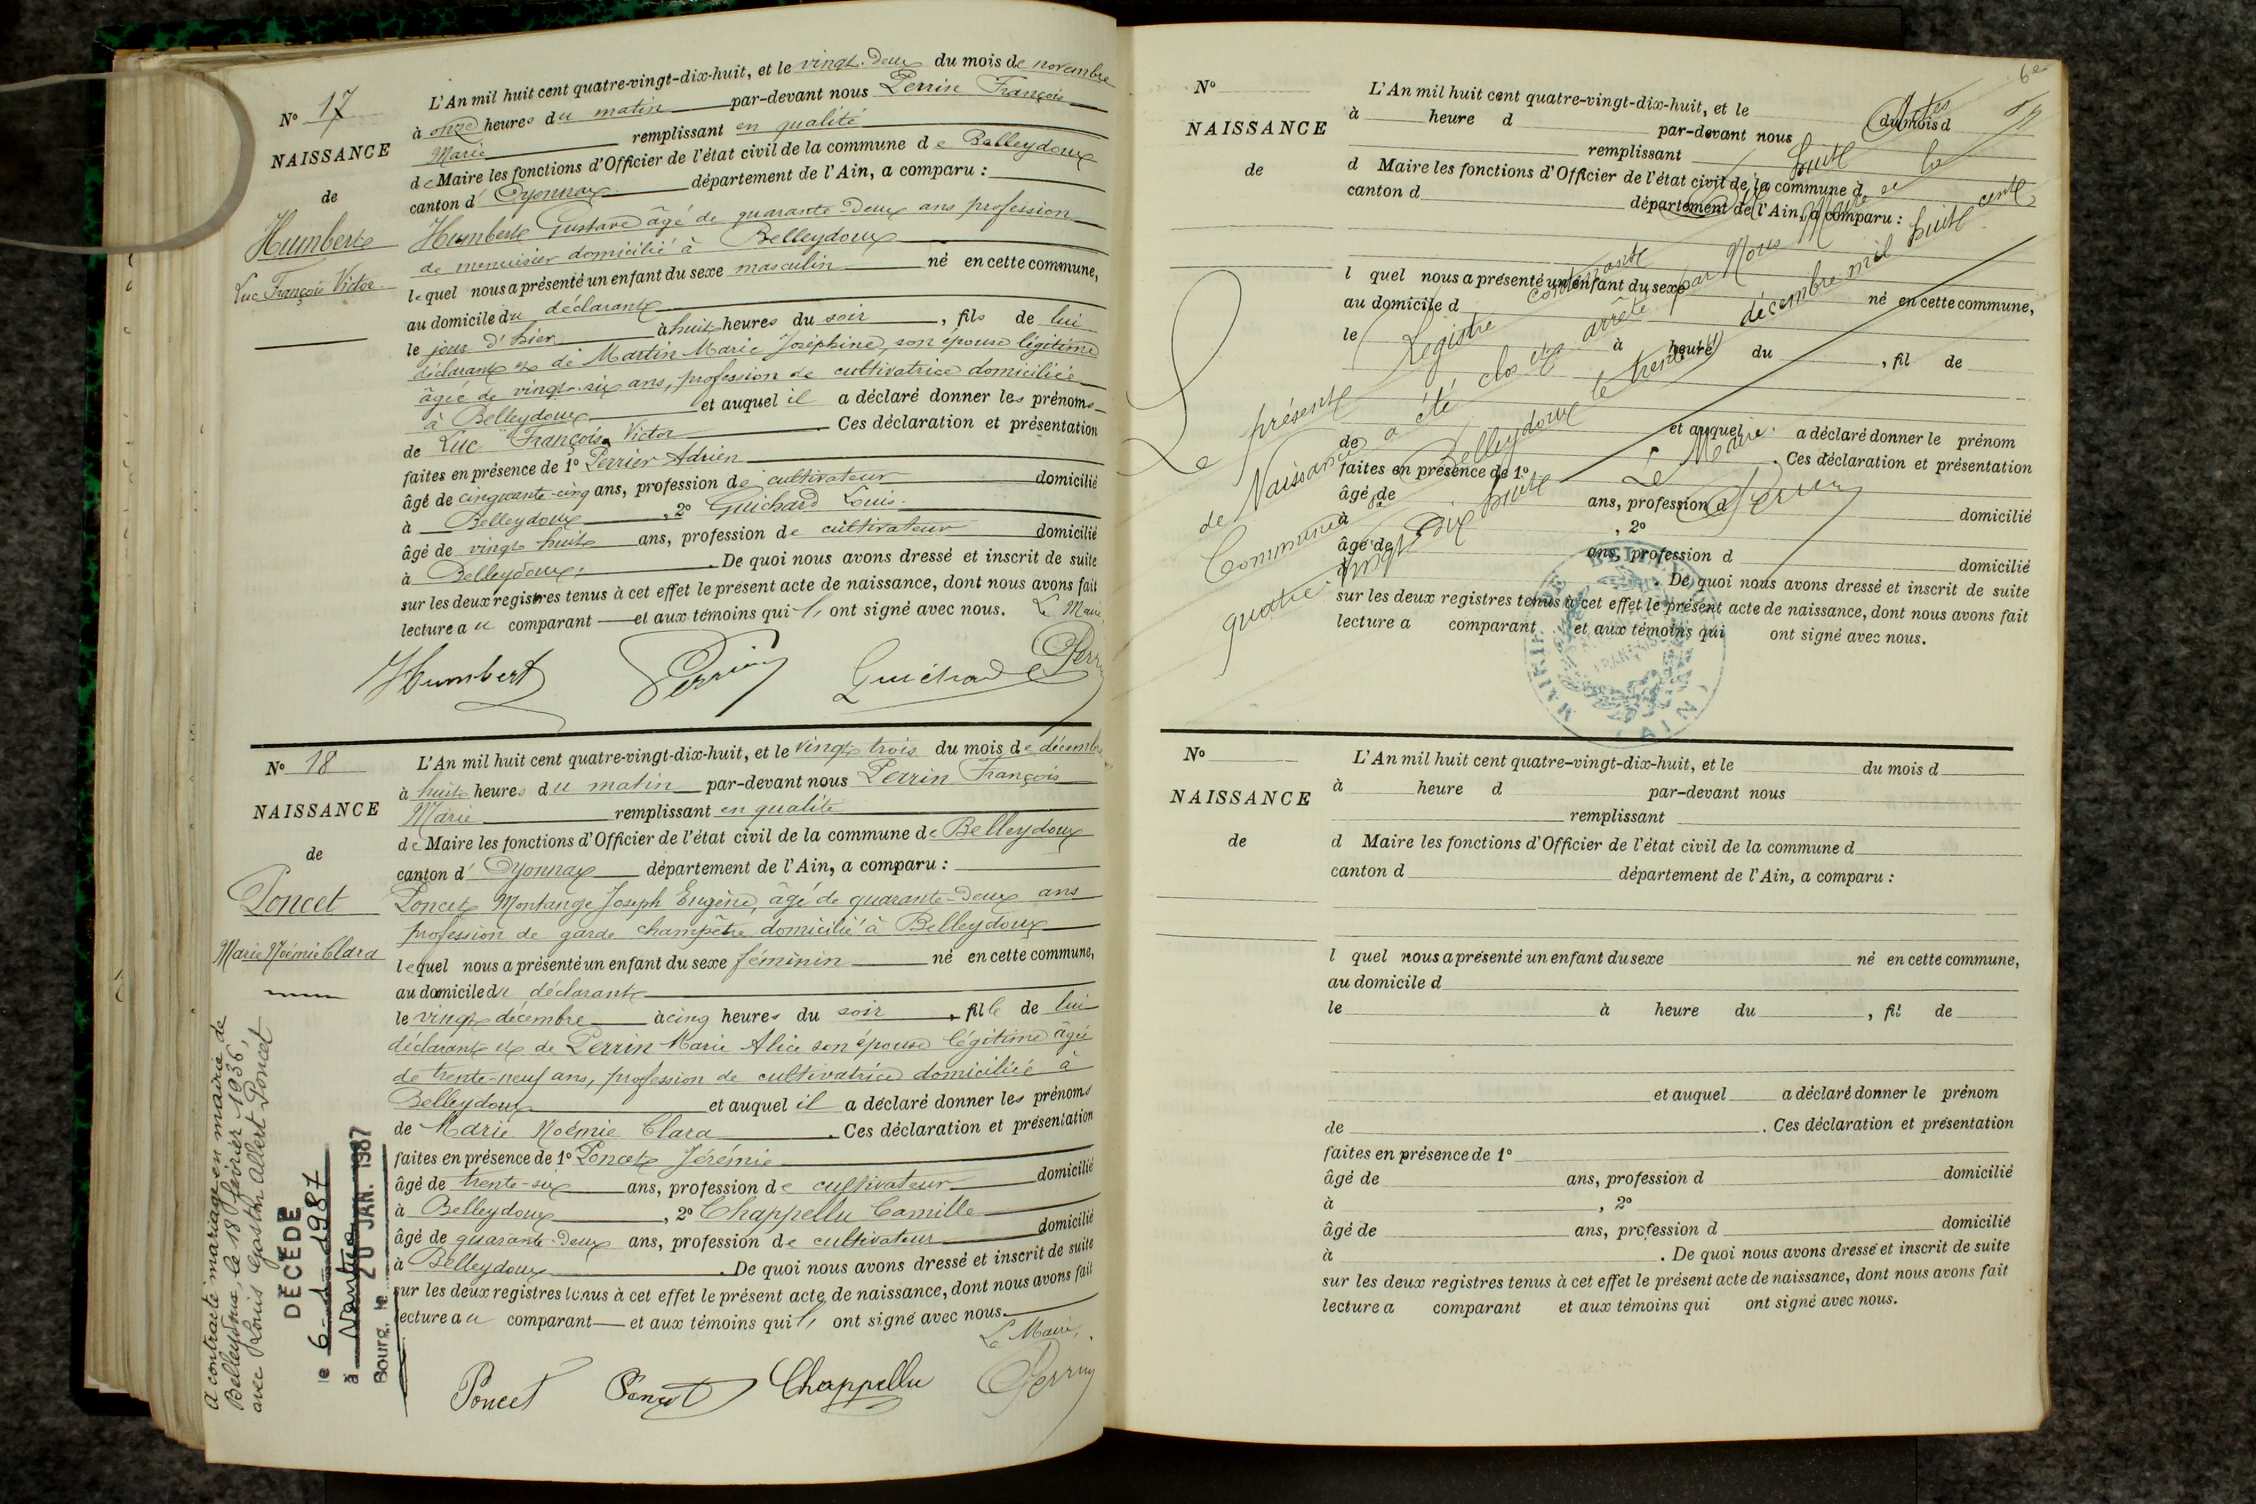 N° 17
NAISSANCE
de
Humbert
Luc François Victor
L'An mil huit cent quatre-vingt-dix-huit, et le vingt-deux du mois de novembre
à onze heures du matin par-devant nous Perrin François
Marie remplissant en qualité
de Maire les fonctions d'Officier de l'état civil de la commune de Belleydoux
canton d'Oyonnax département de l'Ain, a comparu :
Humbert Gustave âgé de quarante-deux ans profession
de menuisier domicilié à Belleydoux
lequel nous a présenté un enfant du sexe masculin né en cette commune,
au domicile du déclarant
le jour d'hier à huit heures du soir, fils de lui
déclarant et de Martin Marie Joséphine, son épouse légitime
âgée de vingt-six ans, profession de cultivatrice domiciliée
à Belleydoux et auquel il a déclaré donner les prénoms
de Luc François Victor Ces déclaration et présentation
faites en présence de 1° Perrier Adrien
âgé de cinquante-cinq ans, profession de cultivateur domicilié
à Belleydoux, 2° Guichard Louis
âgé de vingt huit ans, profession de cultivateur domicilié
à Belleydoux. De quoi nous avons dressé et inscrit de suite
sur les deux registres tenus à cet effet le présent acte de naissance, dont nous avons fait
lecture au comparant et aux témoins qui ont signé avec nous. Le Maire
Humbert Guichard Perrin
N° 18
NAISSANCE
de
Poncet
Marie Noémie Clara
A contracté mariage en mairie de
Belleydoux, le 18 février 1936,
avec Louis Gaston Albert Poncet
DÉCÉDÉ
le 6-1-1987
à Nantua
Bourg, le 20 JAN. 1987
L'An mil huit cent quatre-vingt-dix-huit, et le vingt trois du mois de décembre
à huit heures du matin par-devant nous Perrin François
Marie remplissant en qualité
de Maire les fonctions d'Officier de l'état civil de la commune de Belleydoux
canton d'Oyonnax département de l'Ain, a comparu :
Poncet Montange Joseph Eugène, âgé de quarante-deux ans
profession de garde champêtre domicilié à Belleydoux
lequel nous a présenté un enfant du sexe féminin né en cette commune,
au domicile du déclarant
le vingt décembre à cinq heures du soir, fille de lui
déclarant et de Perrin Marie Alice son épouse légitime âgée
de trente-neuf ans, profession de cultivatrice domiciliée à
Belleydoux et auquel il a déclaré donner les prénoms
de Marie Noémie Clara. Ces déclaration et présentation
faites en présence de 1° Poncet Jérémie
âgé de trente-six ans, profession de cultivateur domicilié
à Belleydoux, 2° Chappellu Camille
âgé de quarante-deux ans, profession de cultivateur domicilié
à Belleydoux. De quoi nous avons dressé et inscrit de suite
sur les deux registres tenus à cet effet le présent acte de naissance, dont nous avons fait
lecture au comparant et aux témoins qui ont signé avec nous.
Le Maire,
Poncet Poncet Chappellu Perrin
6e
N°
NAISSANCE
de
L'An mil huit cent quatre-vingt-dix-huit, et le du mois d
à heure d par-devant nous
remplissant
d Maire les fonctions d'Officier de l'état civil de la commune d
canton d département de l'Ain, a comparu :
l quel nous a présenté un enfant du sexe né en cette commune,
au domicile d
le à heure du , fil de
et auquel a déclaré donner le prénom
de . Ces déclaration et présentation
faites en présence de 1°
âgé de ans, profession d domicilié
à , 2°
âgé de ans, profession d domicilié
à . De quoi nous avons dressé et inscrit de suite
sur les deux registres tenus à cet effet le présent acte de naissance, dont nous avons fait
lecture a comparant et aux témoins qui ont signé avec nous.
Le présent Registre contenant dix huit Actes
de Naissance a été clos et arrêté par Nous Maire de la
Commune de Belleydoux le trente un décembre mil huit cent
quatre vingt Dix huit
Le Maire
Perrin
MAIRIE DE BELLEYDOUX
(AIN)
N°
NAISSANCE
de
L'An mil huit cent quatre-vingt-dix-huit, et le du mois d
à heure d par-devant nous
remplissant
d Maire les fonctions d'Officier de l'état civil de la commune d
canton d département de l'Ain, a comparu :
l quel nous a présenté un enfant du sexe né en cette commune,
au domicile d
le à heure du , fil de
et auquel a déclaré donner le prénom
de . Ces déclaration et présentation
faites en présence de 1°
âgé de ans, profession d domicilié
à , 2°
âgé de ans, profession d domicilié
à . De quoi nous avons dressé et inscrit de suite
sur les deux registres tenus à cet effet le présent acte de naissance, dont nous avons fait
lecture a comparant et aux témoins qui ont signé avec nous.